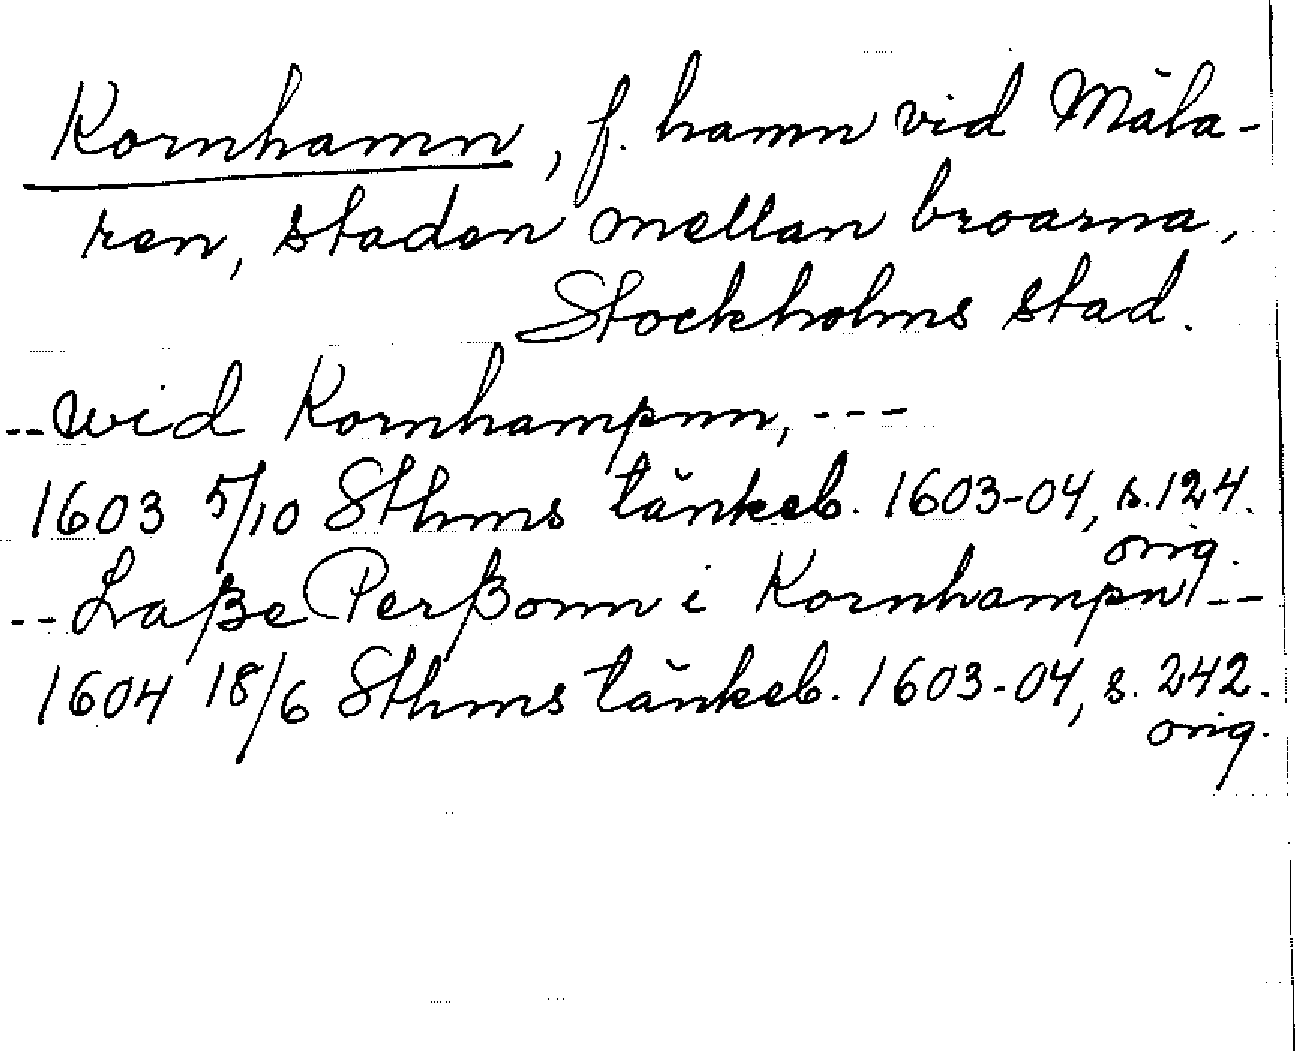 Kornhamn, f. hamn vid Mäla-
ren, staden mellan broarna,
Stockholms stad.
--wid Kornhampnn, ---
1603 5/10 Sthms tänkeb. 1603-04, s. 124.
orig.
--Laße Perßonn i Kornhampn --
1604 18/6 Sthms tänkeb. 1603-04, s. 242.
orig.